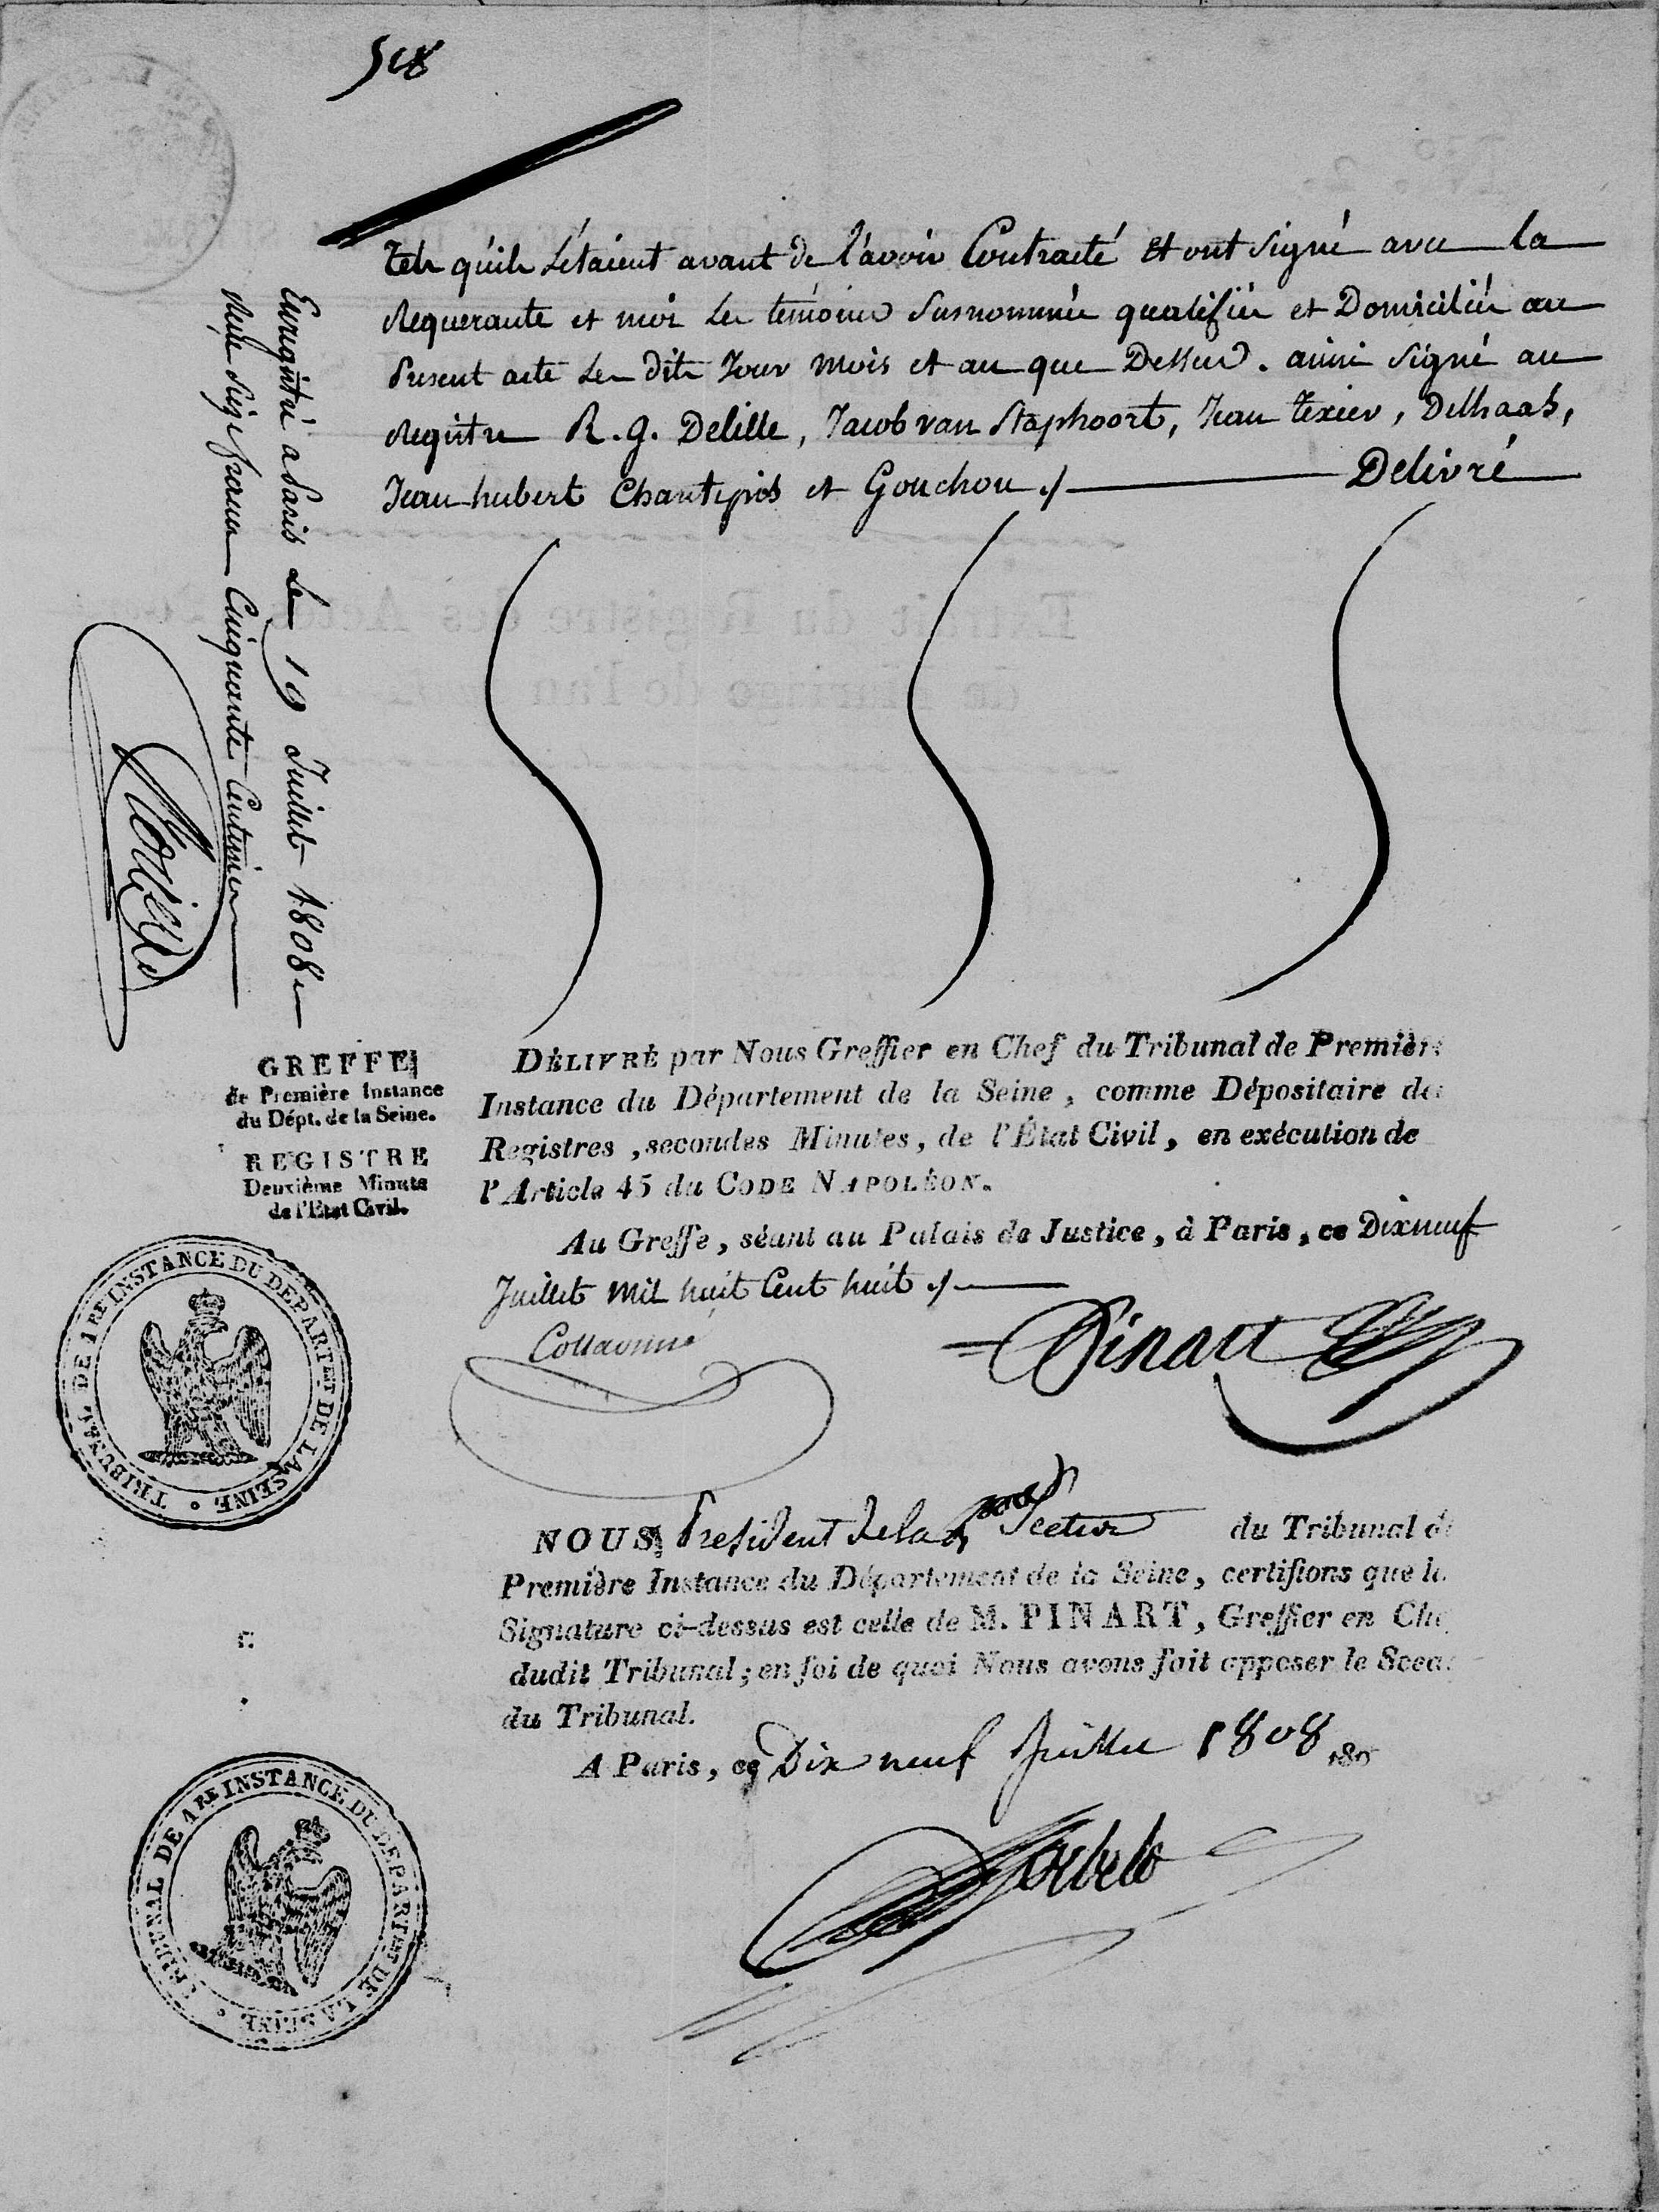 508
tels qu'ils létaient avant de l'avoir Contracté Et ont signé avec la
Requerante et moi les temoins susnommés qualifiés et Domiciliés au
présent acte les dits Jour mois et an que Dessus. ainsi signé au
Registre R. g. Delille, Jacob van Staphoort, Jean Texier, Delhaas,
Jean hubert Chantepis et Gouchon ./. Délivré
Enregistré a Paris le 19 Juillet 1808
Reçu francs Cinquante Centimes
GREFFE
de Première Instance
du Dépt. de la Seine.
REGISTRE
Deuxième Minute
de l'Etat Civil.
DÉLIVRÉ par Nous Greffier en Chef du Tribunal de Première
Instance du Département de la Seine, comme Dépositaire des
Registres, secondes Minutes, de l'État Civil, en exécution de
l'Article 45 du CODE NAPOLÉON.
Au Greffe, séant au Palais de Justice, à Paris, ce Dixneuf
Juillet mil huit Cent huit ./.
Collationné
Pinart
TRIBUNAL DE 1RE INSTANCE DU DEPARTET DE LA SEINE
NOUS President de la Section du Tribunal de
Première Instance du Département de la Seine, certifions que la
Signature ci-dessus est celle de M. PINART, Greffier en Che
dudit Tribunal; en foi de quoi Nous avons fait apposer le Scea
du Tribunal.
A Paris, ce Dix neuf Juillet 1808 180
TRIBUNAL DE 1RE INSTANCE DU DEPARTET DE LA SEINE